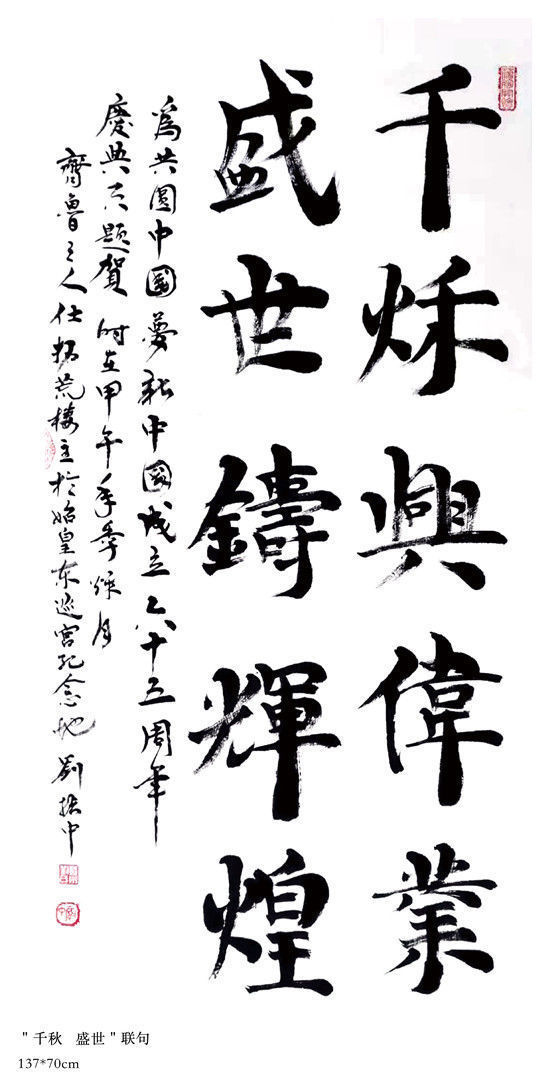 千秌興偉業
盛世鑄輝煌
為共圆中國夢新中國成立六十五周年
慶典而题賀 时在甲午年季秌月
齊魯之人仕拓荒楼主於始皇东巡宫纪念地 劉振中
"千秋 盛世"联句
137*70cm